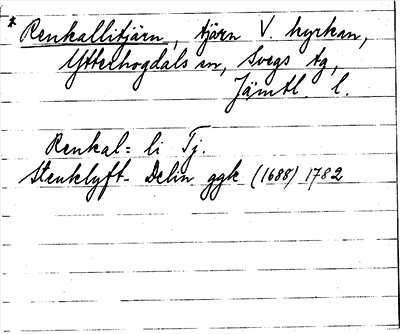 * Renkallitjärn, tjärn V. kyrkan,
Ytterhogdals sn, Svegs tg,
Jämtl. l.
Renkal= li Tj.
Stenklyft- Delin ggk (1688) 1782